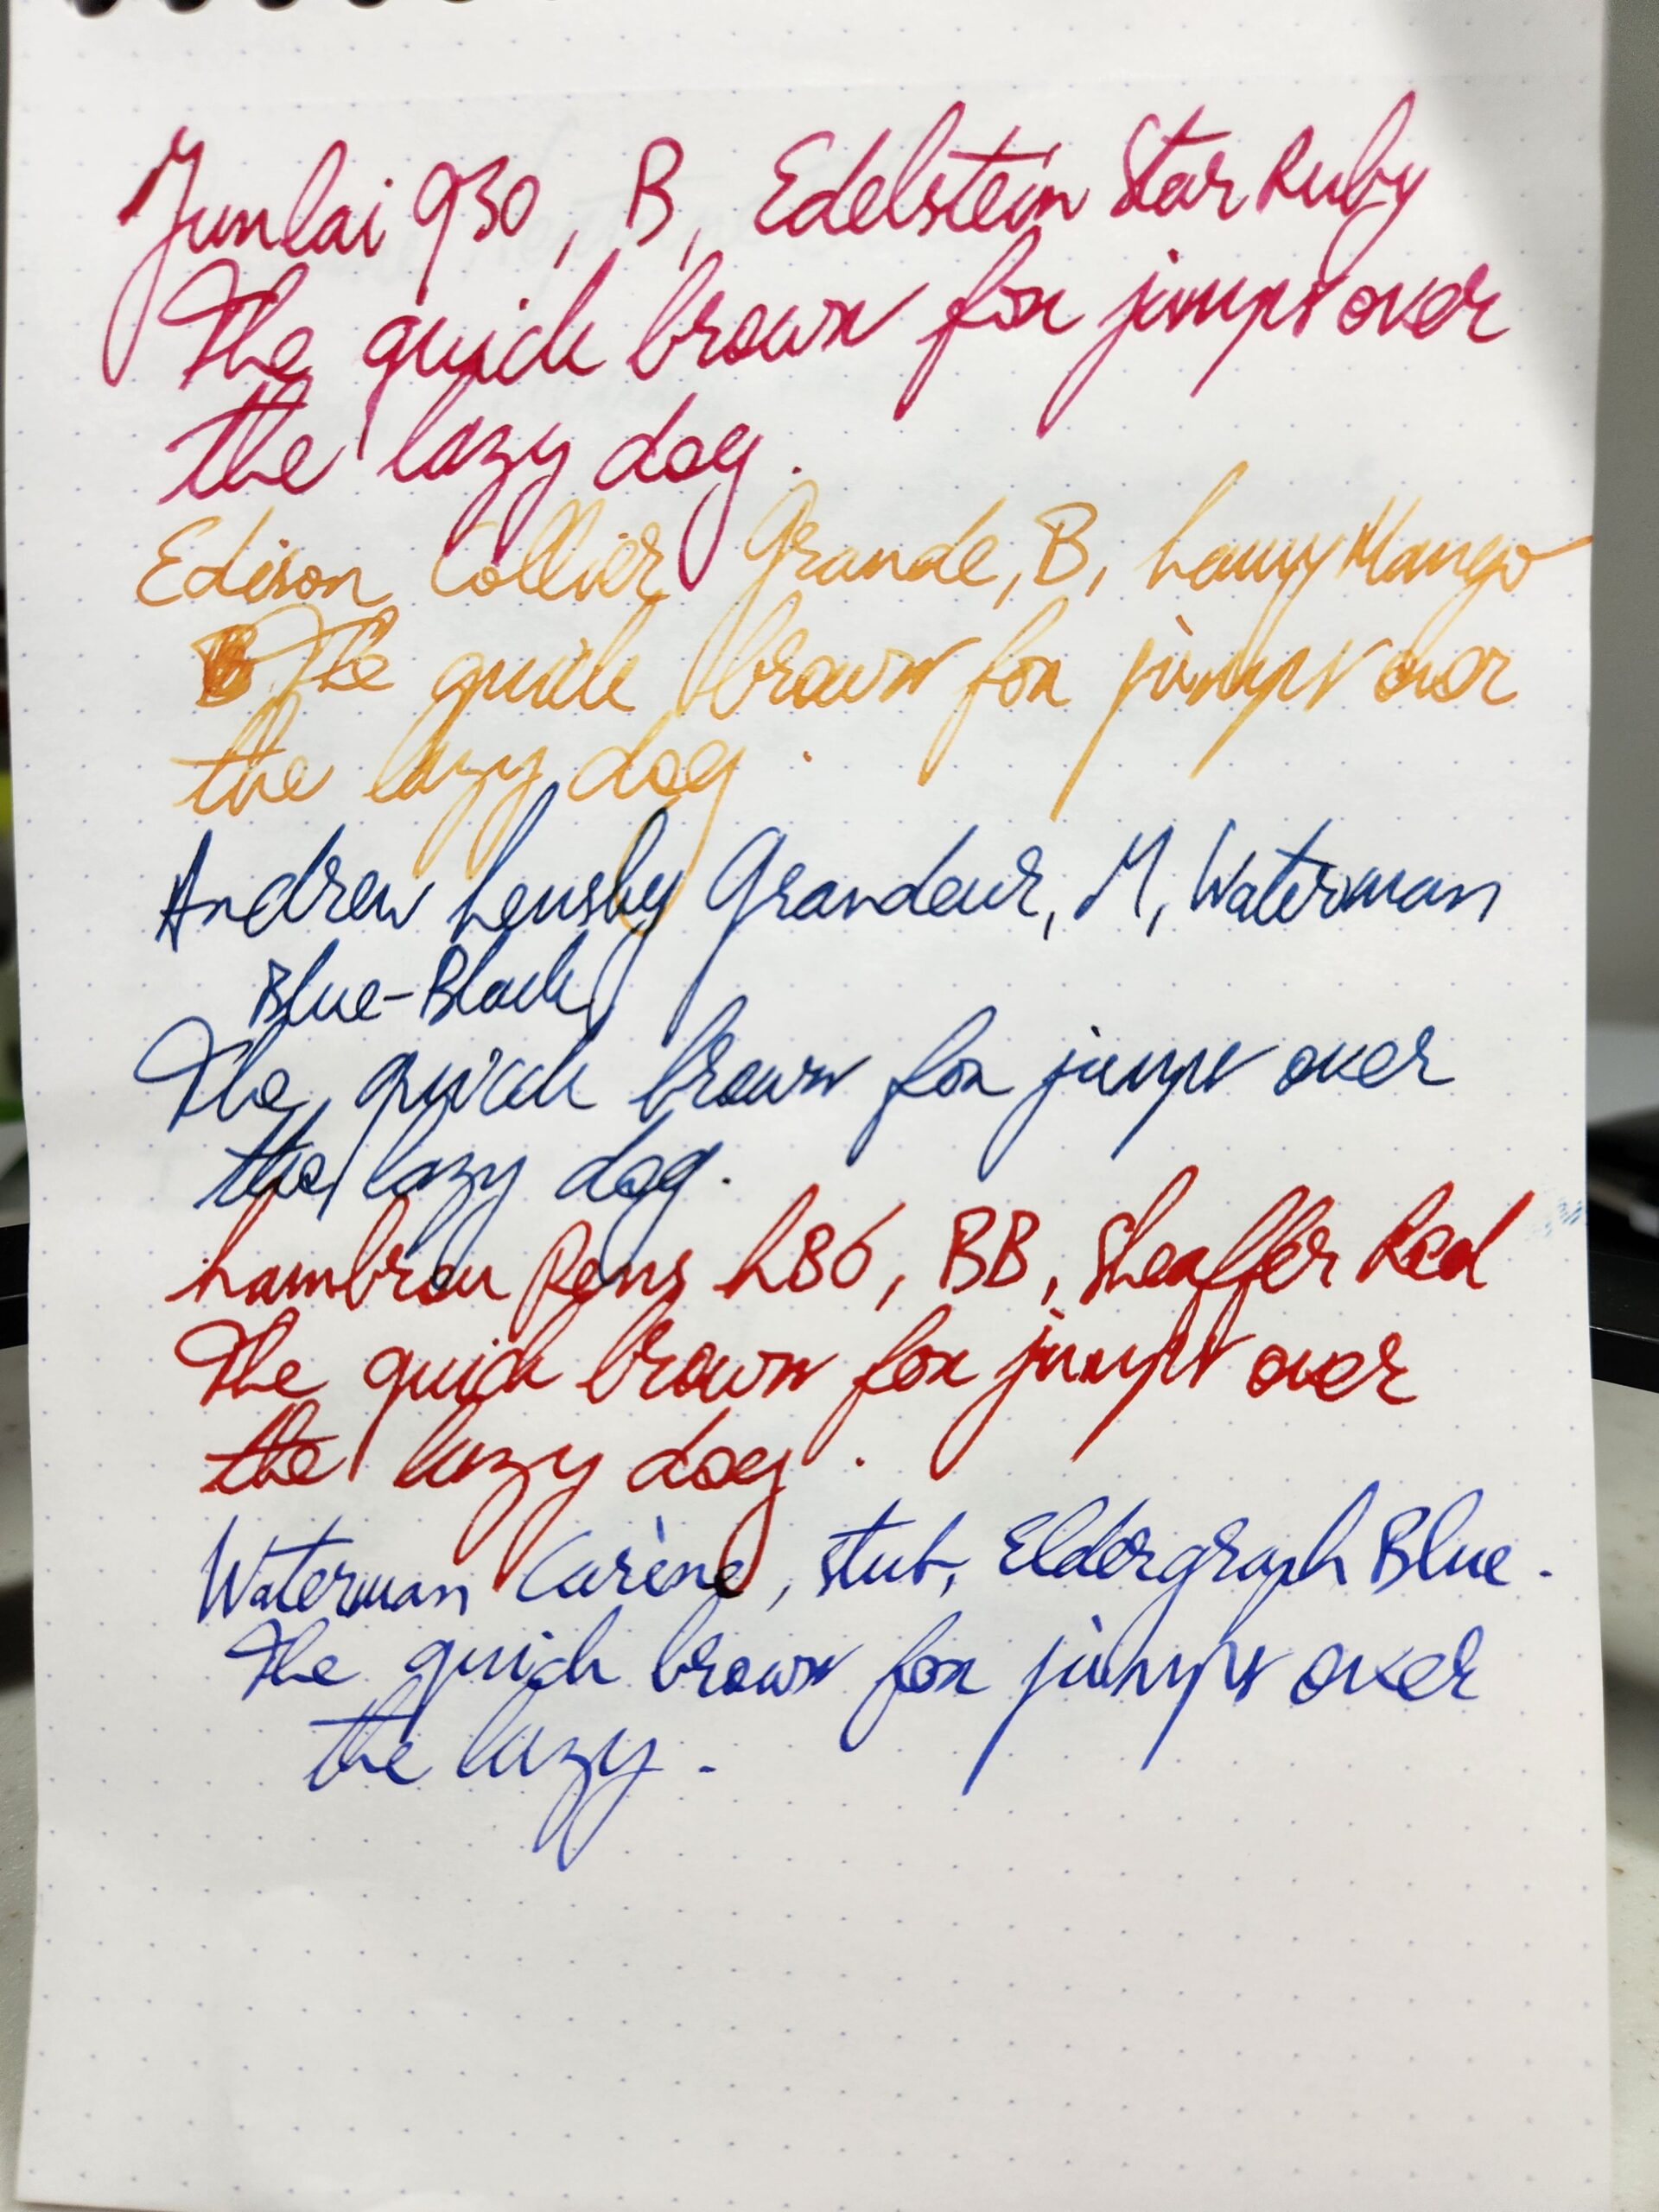 Junlai 930, B, Edelstein Star Ruby
The quick brown fox jumps over
the lazy dog.
Edison Collier Grande, B, Lamy Mango
The quick brown fox jumps over
the lazy dog.
Andrew Lensby Grandeur, M, Waterman
Blue-Black
The quick brown fox jumps over
the lazy dog.
Lambrou Pens L86, BB, Sheaffer Red
The quick brown fox jumps over
the lazy dog.
Waterman Carène, stub, Eldergraph Blue.
The quick brown fox jumps over
the lazy.